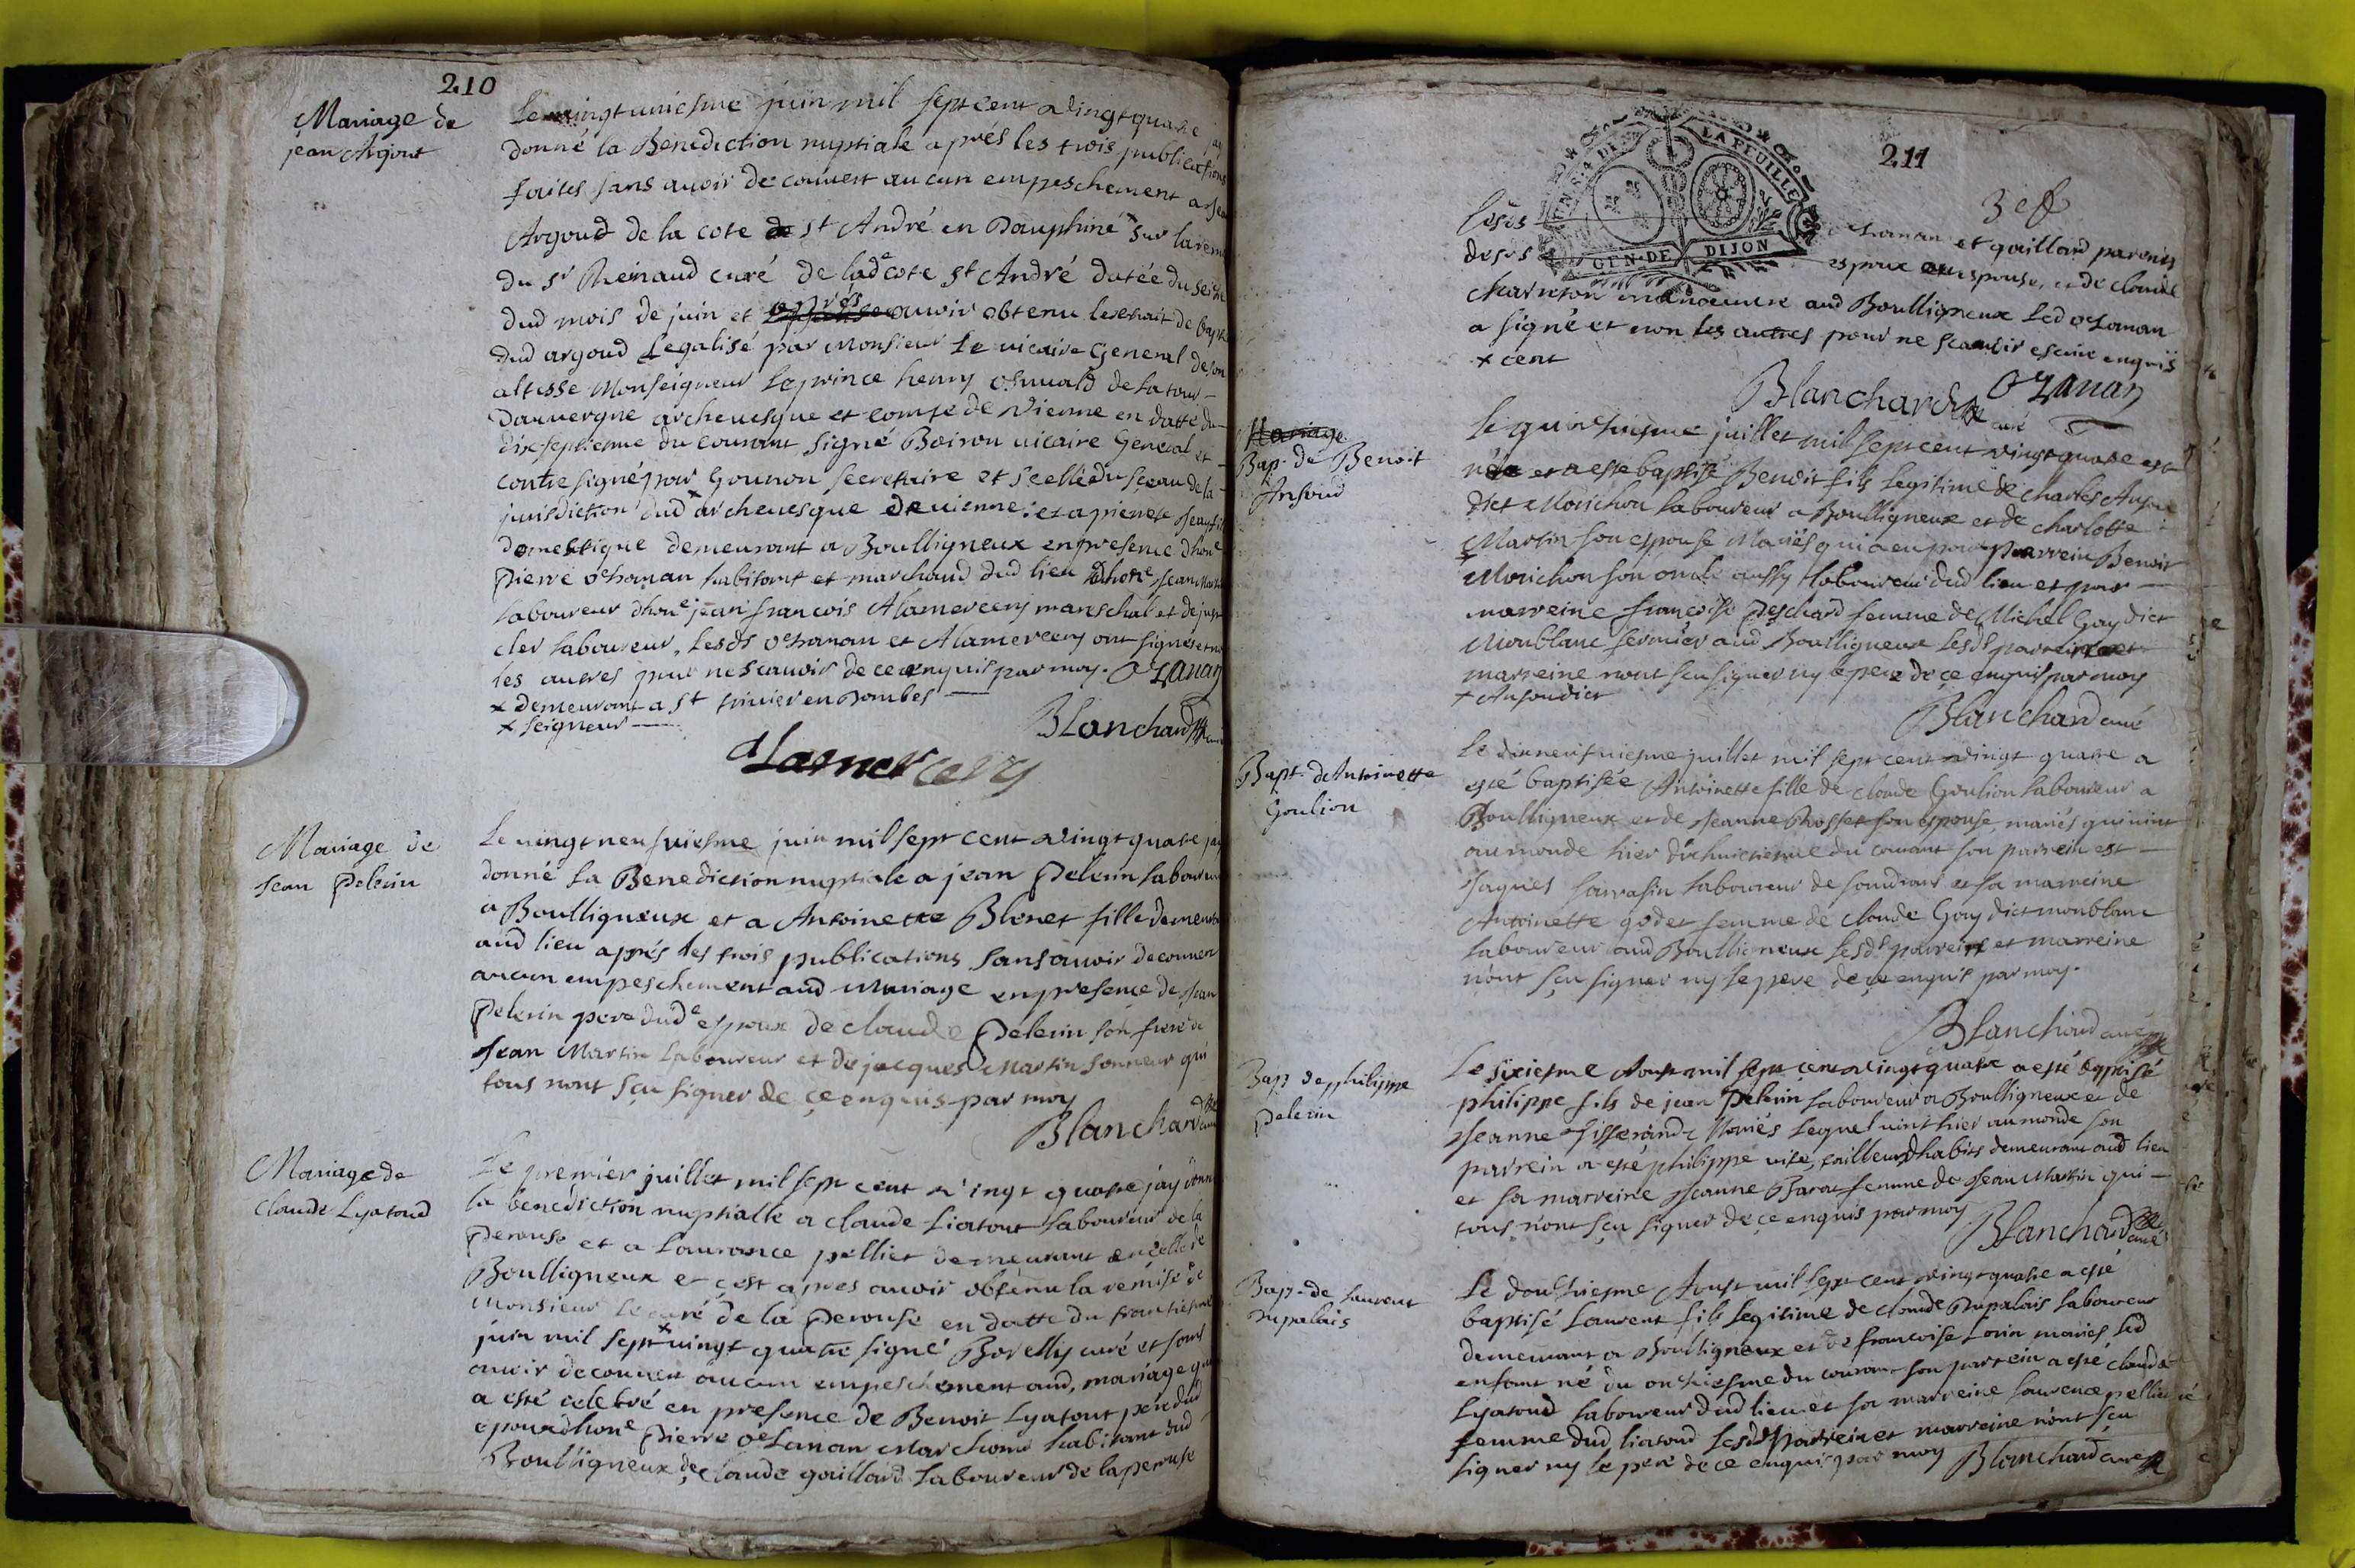 210
Mariage de
jean Argout
Le vingt uniesme juin mil sept cent vingt quatre jay
donné la Benediction nuptiale aprés les trois publications
faites sans avoir decouvert aucun empeschement a Jean
Argoud de la cote de st André en Dauphiné x sur la remise
du sr Reinaud curé de lade cote st André datée du seize
dud mois de juin et apres avoir obtenu lextrait de bapt
dud argoud Legalisé par Monsieur Le vicaire General de son
altesse Monseigneur Le prince henry oswald de la tour
Dauvergne archevesque et comte de Vienne en datte du
dixseptiesme du courant signé Boiron vicaire General et
contresigné par Gounon secretaire et scellé du sceau de la
jurisdiction dud x archevesque de vienne: et a
domestique demeurant a Boulligneux en presence dhone
Pierre ozanan habitant et marchand dud lieu dhone Jean Martin
laboureur dhone jean francois Alamercery mareschal et de
cler laboureur, Lesds ozanan et Alamercery ont signés et non
les autres pour ne scavoir de ce enquis par moy. OZanan
x demeurant a st trivier en Dombes
x seigneur
Blanchard curé
alamercery
Mariage de
Jean Pelerin
Le vingt neufviesme juin mil sept cent vingt quatre jay
donné la Benediction nuptiale a jean Pelerin laboureur
a Boulligneux et a Antoinette Blonet fille demeurant
aud lieu aprés les trois publications sans avoir decouvert
aucun empeschement aud Mariage en presence de Jean
Pelerin pere dud epoux de claude Pelerin son frere de
Jean Martin Laboureur et de jacques Martin sonneur qui
tous nont sçu signer de ce enquis par moy
Blanchard curé
Mariage de
Claude Lyatoud
Le premier juillet mil sept cent vingt quatre jay donné
la benediction nuptialle a claude Liatout laboureur de la
Perouse et a Laurance pellier demeurant en celle de
Boulligneux et c'est apres avoir obtenu la remise de
Monsieur Le curé de la Perouse en datte du trantiesme
juin mil sept x vingt quatre signé Borelly curé et sans
avoir decouvert aucun empeschement aud, mariage qui
a esté celebré en presence de Benoit Lyatout pere dud
epoux dhone Pierre ozanan Marchand habitant dud
Boulligneux de claude gaillard Laboureur de la perouse
211
GEN. DE DIJON
LA FEUILLE
3 e f
lesds ozanan et gaillard parents
desds espoux et espouse, et de claude
charreton manoeuvre aud Boulligneux Led ozanan
a signé et non les autres pour ne scavoir escrire enquis
x cent
Blanchard curé OZanan
Mariage
Bap. de Benoit
Ansoud
Le quinsiesme juillet mil sept cent vingt quatre est
né et a esté baptisé Benoit fils legitime de charles Ansoud
dict Morichon laboureur a Boulligneux et de charlotte
Martin son espouse Mariés qui a eu pour parrein Benoit
x Morichon son oncle aussy laboureur dud lieu et pour
marreine francoise Peschard femme de Michel Gay dict
Monblanc fermier aud Boulligneux Lesds parrein et
marreine nont sçu signer ny le pere de ce enquis par moy
x Ansoudict
Blanchard curé
Bapt. de Antoinette
Goulion
Le dixneufviesme juillet mil sept cent vingt quatre a
esté baptisée Antoinette fille de claude Goulion laboureur a
Boulligneux et de Jeanne Rosset son espouse, mariés qui vint
au monde hier dixhuictiesme du courant son parrein est
Jaques sarrasin laboureur de sandrans et sa marreine
Antoinette godet femme de claude Gay dict monblanc
laboureur aud Boulligneux Lesds parrein et marreine
n'ont sçu signer ny le pere de ce enquis par moy.
Blanchard curé
Bap de philippe
Pelerin
Le sixiesme Aoust mil sept cent vingt quatre a esté baptisé
philippe fils de jean Pelerin laboureur a Boulligneux et de
Jeanne Tisserand Mariés Lequel vint hier au monde son
parrein a esté philippe vite, tailleur dhabits demeurant aud lieu
et sa marreine Jeanne Barat femme de Jean Martin qui
tous n'ont sçu signer de ce enquis par moy
Blanchard curé
Bap. de Laurent
Dupalais
Le dousiesme Aoust mil sept cent vingt quatre a esté
baptisé Laurent fils legitime de claude Dupalais laboureur
demeurant a Boulligneux et de francoise Lorin mariés led
enfant né du onziesme du courant son parrein a esté claude
Lyatoud laboureur dud lieu et sa marreine laurence pellier
femme dud liatoud lesds parrein et marreine n'ont sçu
signer ny le pere de ce enquis par moy Blanchard curé